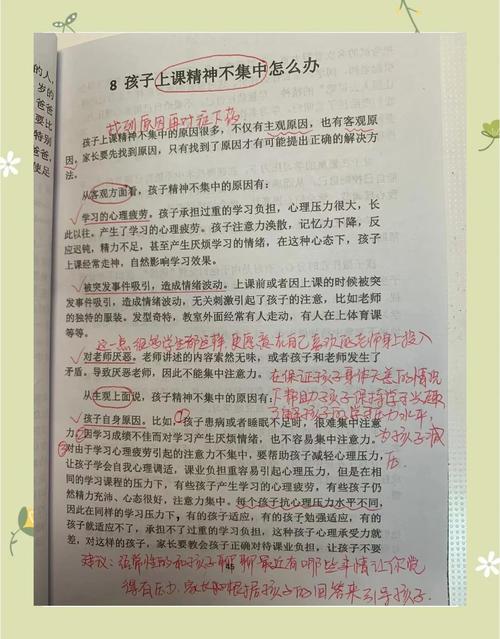 的人,
岁的
爸爸
要比
特别
爸爸,
使足
8 孩子上课精神不集中怎么办
找到原因再对症下药
孩子上课精神不集中的原因很多,不仅有主观原因,也有客观原
因,家长要先找到原因,只有找到了原因才有可能提出正确的解决方
法。
从客观方面看,孩子精神不集中的原因有:
学习的心理疲劳。孩子承担过重的学习负担,心理压力很大,长
此以往。产生了学习的心理疲劳。孩子注意力涣散,记忆力下降,反
应迟钝,精力不足,甚至产生厌烦学习的情绪,在这种心态下,孩子
上课经常走神,自然影响学习效果。
被突发事件吸引,造成情绪波动。上课前或者因上课的时候被突
发事件吸引,造成情绪波动,无关刺激引起了孩子的注意,比如老师
的独特的服装。发型奇特,教室外面经常有人走动,有人在上体育课
等等。
这一点很多学生都这样,更愿意在自己喜欢的老师身上投入
对老师厌恶。老师讲述的内容索然无味,或者孩子和老师发生了
矛盾。导致厌恶老师,因此不能集中注意力。
在保证孩子身体无恙的情况
下帮助孩子保持学习兴趣
了解孩子的学习压力水平,
为孩子减
压
从主观上面说,孩子精神不集中的原因有:
孩子自身原因。比如:①孩子患病或者睡眠不足时,很难集中注意
力;②因学习成绩不佳而对学习产生厌烦情绪,也不容易集中注意力。
③对由于学习心理疲劳引起的注意力不集中,要帮助孩子减轻心理压力,
让孩子学会自我心理调适,课业负担重容易引起心理压力,但是在相
同的学习课程的压力下,有些孩子产生学习的心理疲劳,有些孩子仍
然精力充沛、心态很好,注意力集中。每个孩子抗心理压力水平不同,
因此在同样的学习压力下,有的孩子适应,有的孩子勉强适应,有的
孩子就适应不了,承担不了过重的学习负担,这种孩子心理承受力就
差,对这样的孩子,家长要教会孩子正确对待课业负担,让孩子不要
45
建议:经常性的和孩子聊聊最近有哪些事情让你觉
得有压力,家长们根据孩子的回答来引导孩子.